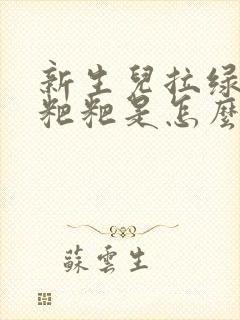 新生兒拉绿
粑粑是怎麽
蘇雲生